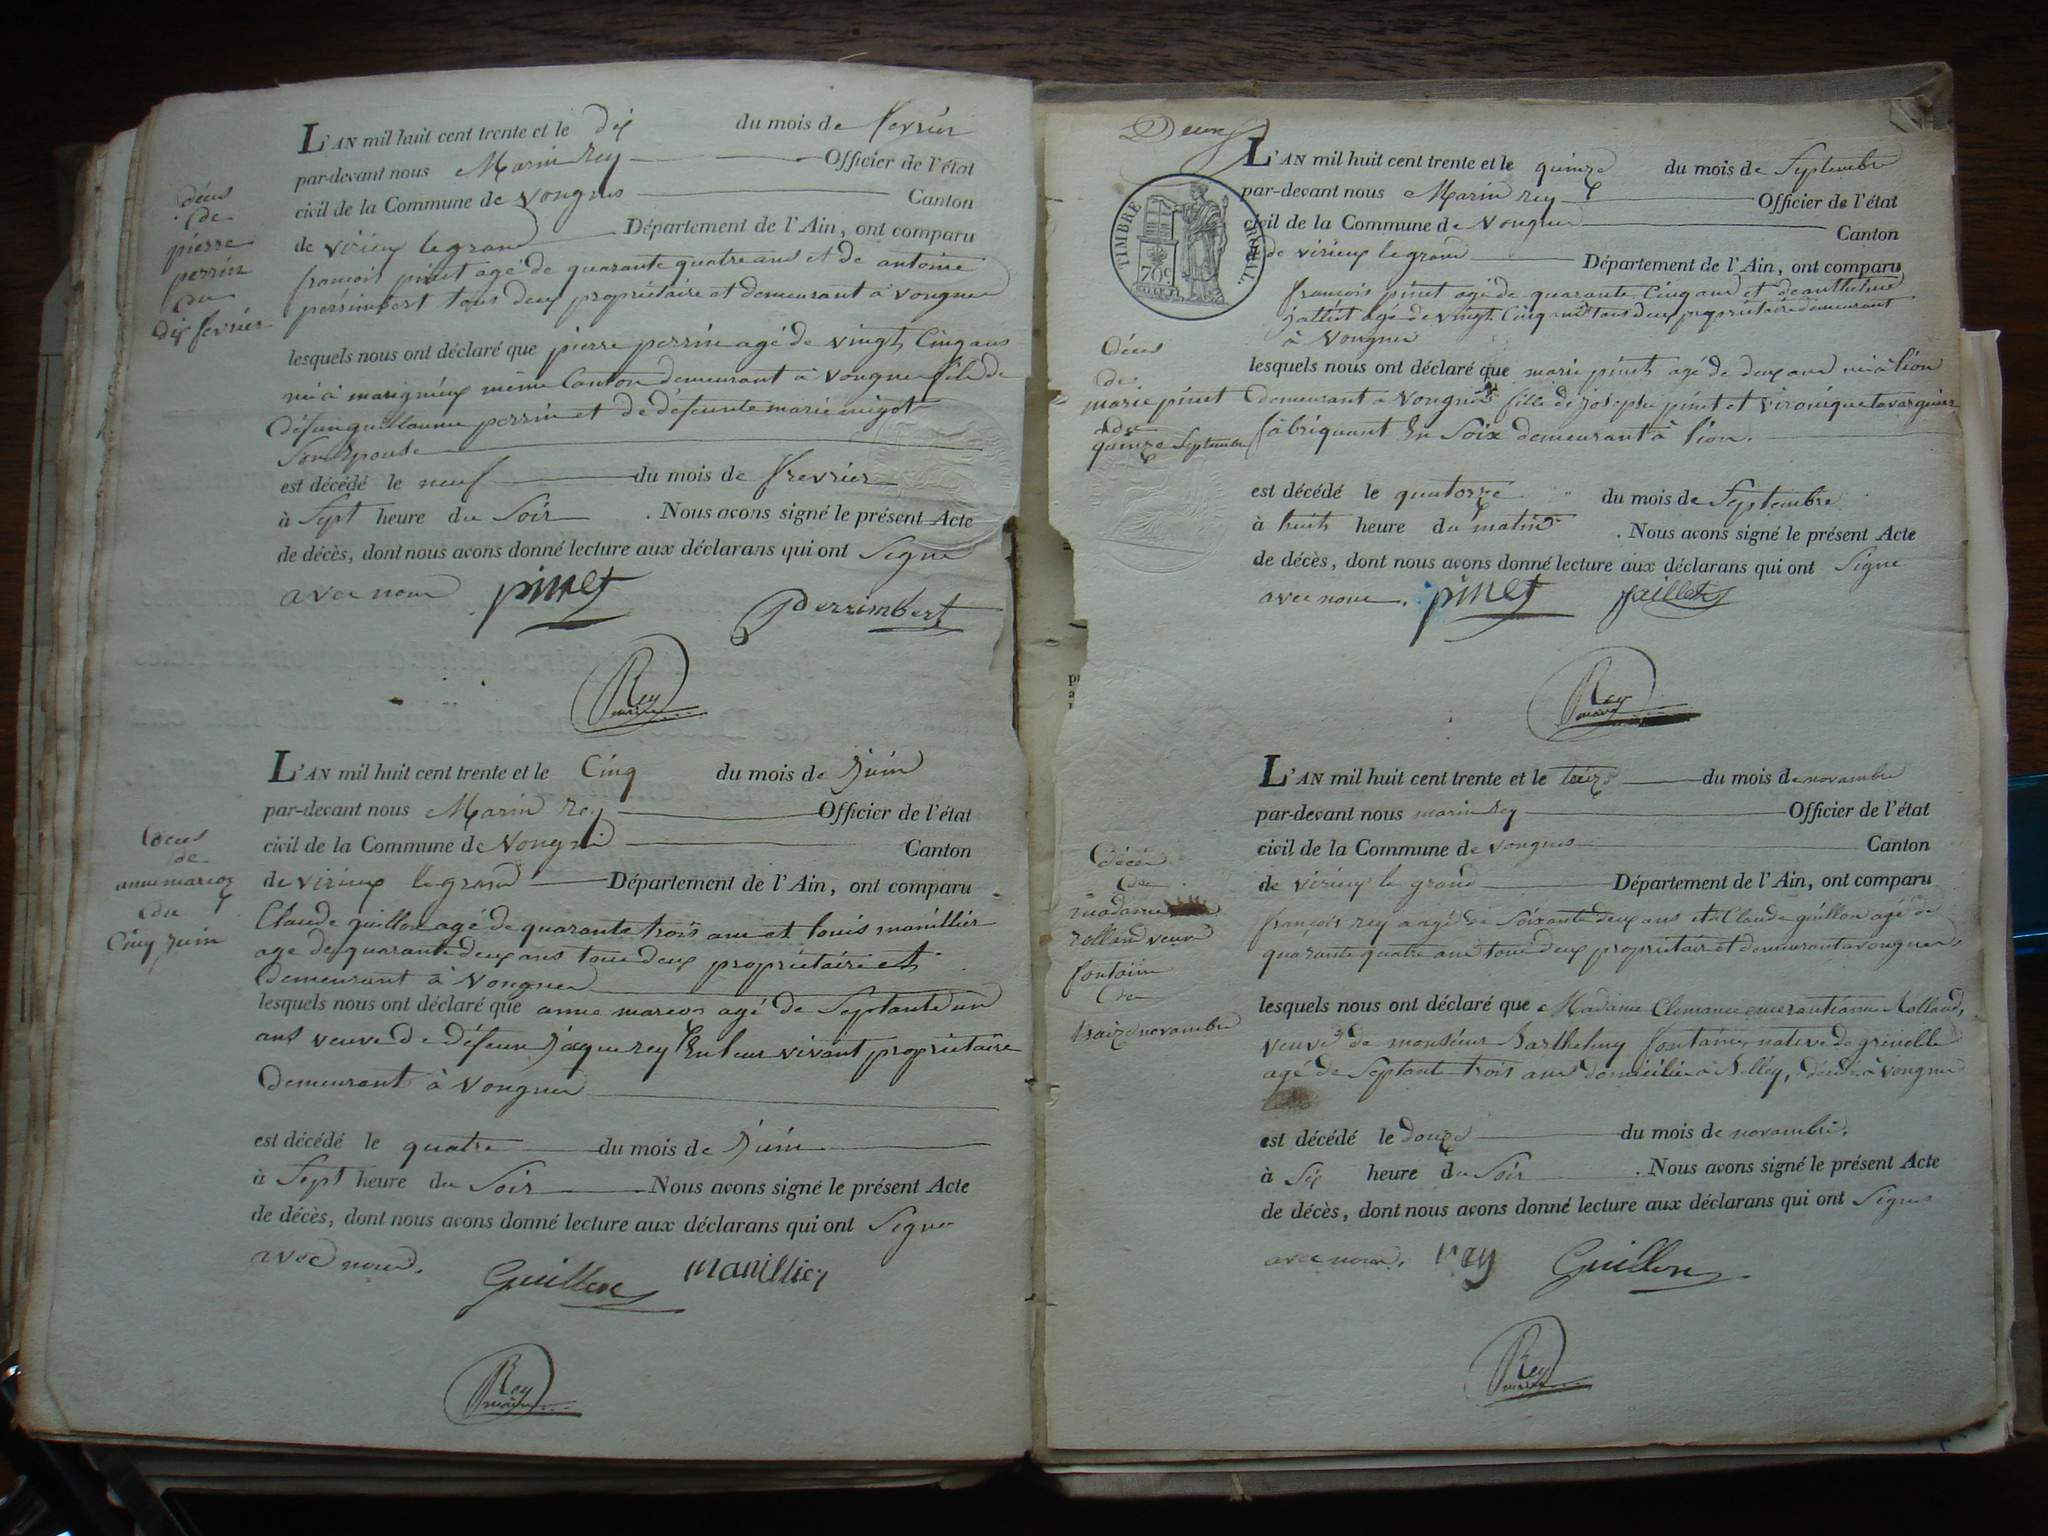 L'AN mil huit cent trente et le dix du mois de fevrier
par-devant nous Marin Rey Officier de l'état
civil de la Commune de Vongnes Canton
de virieux le grand Département de l'Ain, ont comparu
francois pinet agé de quarante quatre ans et de antoine
perrimbert tous deux propriétaire et demeurant à vongnes
lesquels nous ont déclaré que pierre perrin agé de vingt Cinq ans
né à marignieux même Canton demeurant à vongnes fils de
défun guillaume perrin et de défeunte marie migot
Son Epouse
est décédé le neuf du mois de frevrier
à Sept heure du Soir . Nous avons signé le présent Acte
de décès, dont nous avons donné lecture aux déclarans qui ont Signé
avec nous pinet Perrimbert
Rey
maire
décès
de
pierre
perrin
du
dix fevrier
L'AN mil huit cent trente et le Cinq du mois de Juin
par-devant nous Marin Rey Officier de l'état
civil de la Commune de Vongnes Canton
de virieux le grand Département de l'Ain, ont comparu
Claude guillon agé de quarante trois ans et louis manillier
age de quarante deux ans tous deux propriétaire et
demeurant à Vongnes
lesquels nous ont déclaré que anne marcoz agé de Septante un
ans veuve de défeun Jacque rey En leur vivant propriétaire
demeurant à Vongnes
est décédé le quatre du mois de Juin
à Sept heure du Soir Nous avons signé le présent Acte
de décès, dont nous avons donné lecture aux déclarans qui ont Signé
avec nous. Guillon manillier
Rey
maire
décès
de
anne marcoz
du
Cinq Juin
Deux
TIMBRE ROYAL.
70c
L'AN mil huit cent trente et le quinze du mois de Septembre
par-devant nous Marin rey Officier de l'état
civil de la Commune de Vongnes Canton
de virieux le grand Département de l'Ain, ont comparu
francois pinet agé de quarante Cinq ans et de anthelme
jallet agé de vingt Cinq ans tous deux propriétaire demeurant
à Vongnes
lesquels nous ont déclaré que marie pinet agé de deux ans né à lion
demeurant à Vongnes fille de joseph pinet et vironique
fabriquant En Soix demeurant à lion.
est décédé le quatorze du mois de Septembre
à huit heure du matin . Nous avons signé le présent Acte
de décès, dont nous avons donné lecture aux déclarans qui ont Signé
avec nous. pinet jaillet
Rey
maire
décès
de
marie pinet
du
quinze Septembre
L'AN mil huit cent trente et le treize du mois de novambre
par-devant nous marin rey Officier de l'état
civil de la Commune de Vongnes Canton
de virieux le grand Département de l'Ain, ont comparu
françois rey agé de Soixante deux ans et Claude guillon agé de
quarante quatre ans tous deux propriétaire et demeurant a vongnes
lesquels nous ont déclaré que Madame Clemance Rolland,
veuve de monsieur Barthelemy fontaine, native de grenoble
agé de Septante trois ans domiciliée à Belley, à vongnes
est décédé le douze du mois de novambre.
à Six heure du Soir . Nous avons signé le présent Acte
de décès, dont nous avons donné lecture aux déclarans qui ont Signés
avec nous. rey Guillon
Rey
maire
décès
de
madame
rolland veuve
fontaine
du
traize novambre